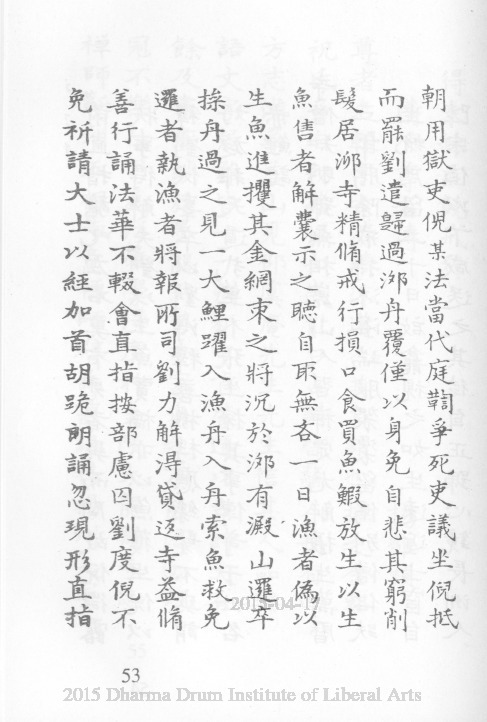 朝用獄吏倪某法當代庭鞫爭死吏議坐倪抵
而罷劉遣歸過泖舟覆僅以身免自悲其窮削
髮居泖寺精脩戒行損口食買魚鰕放生以生
魚售者解囊示之聽自取無吝一日漁者偽以
生魚進攫其金網束之將沉於泖有澱山邏卒
操舟過之見一大鯉躍入漁舟入舟索魚救免
邏者執漁者將報所司劉力解得貸返寺益脩
善行誦法華不輟會直指按部慮囚劉度倪不
免祈請大士以經加首胡跪朗誦忽現形直指
2015-04-17
53
2015 Dharma Drum Institute of Liberal Arts